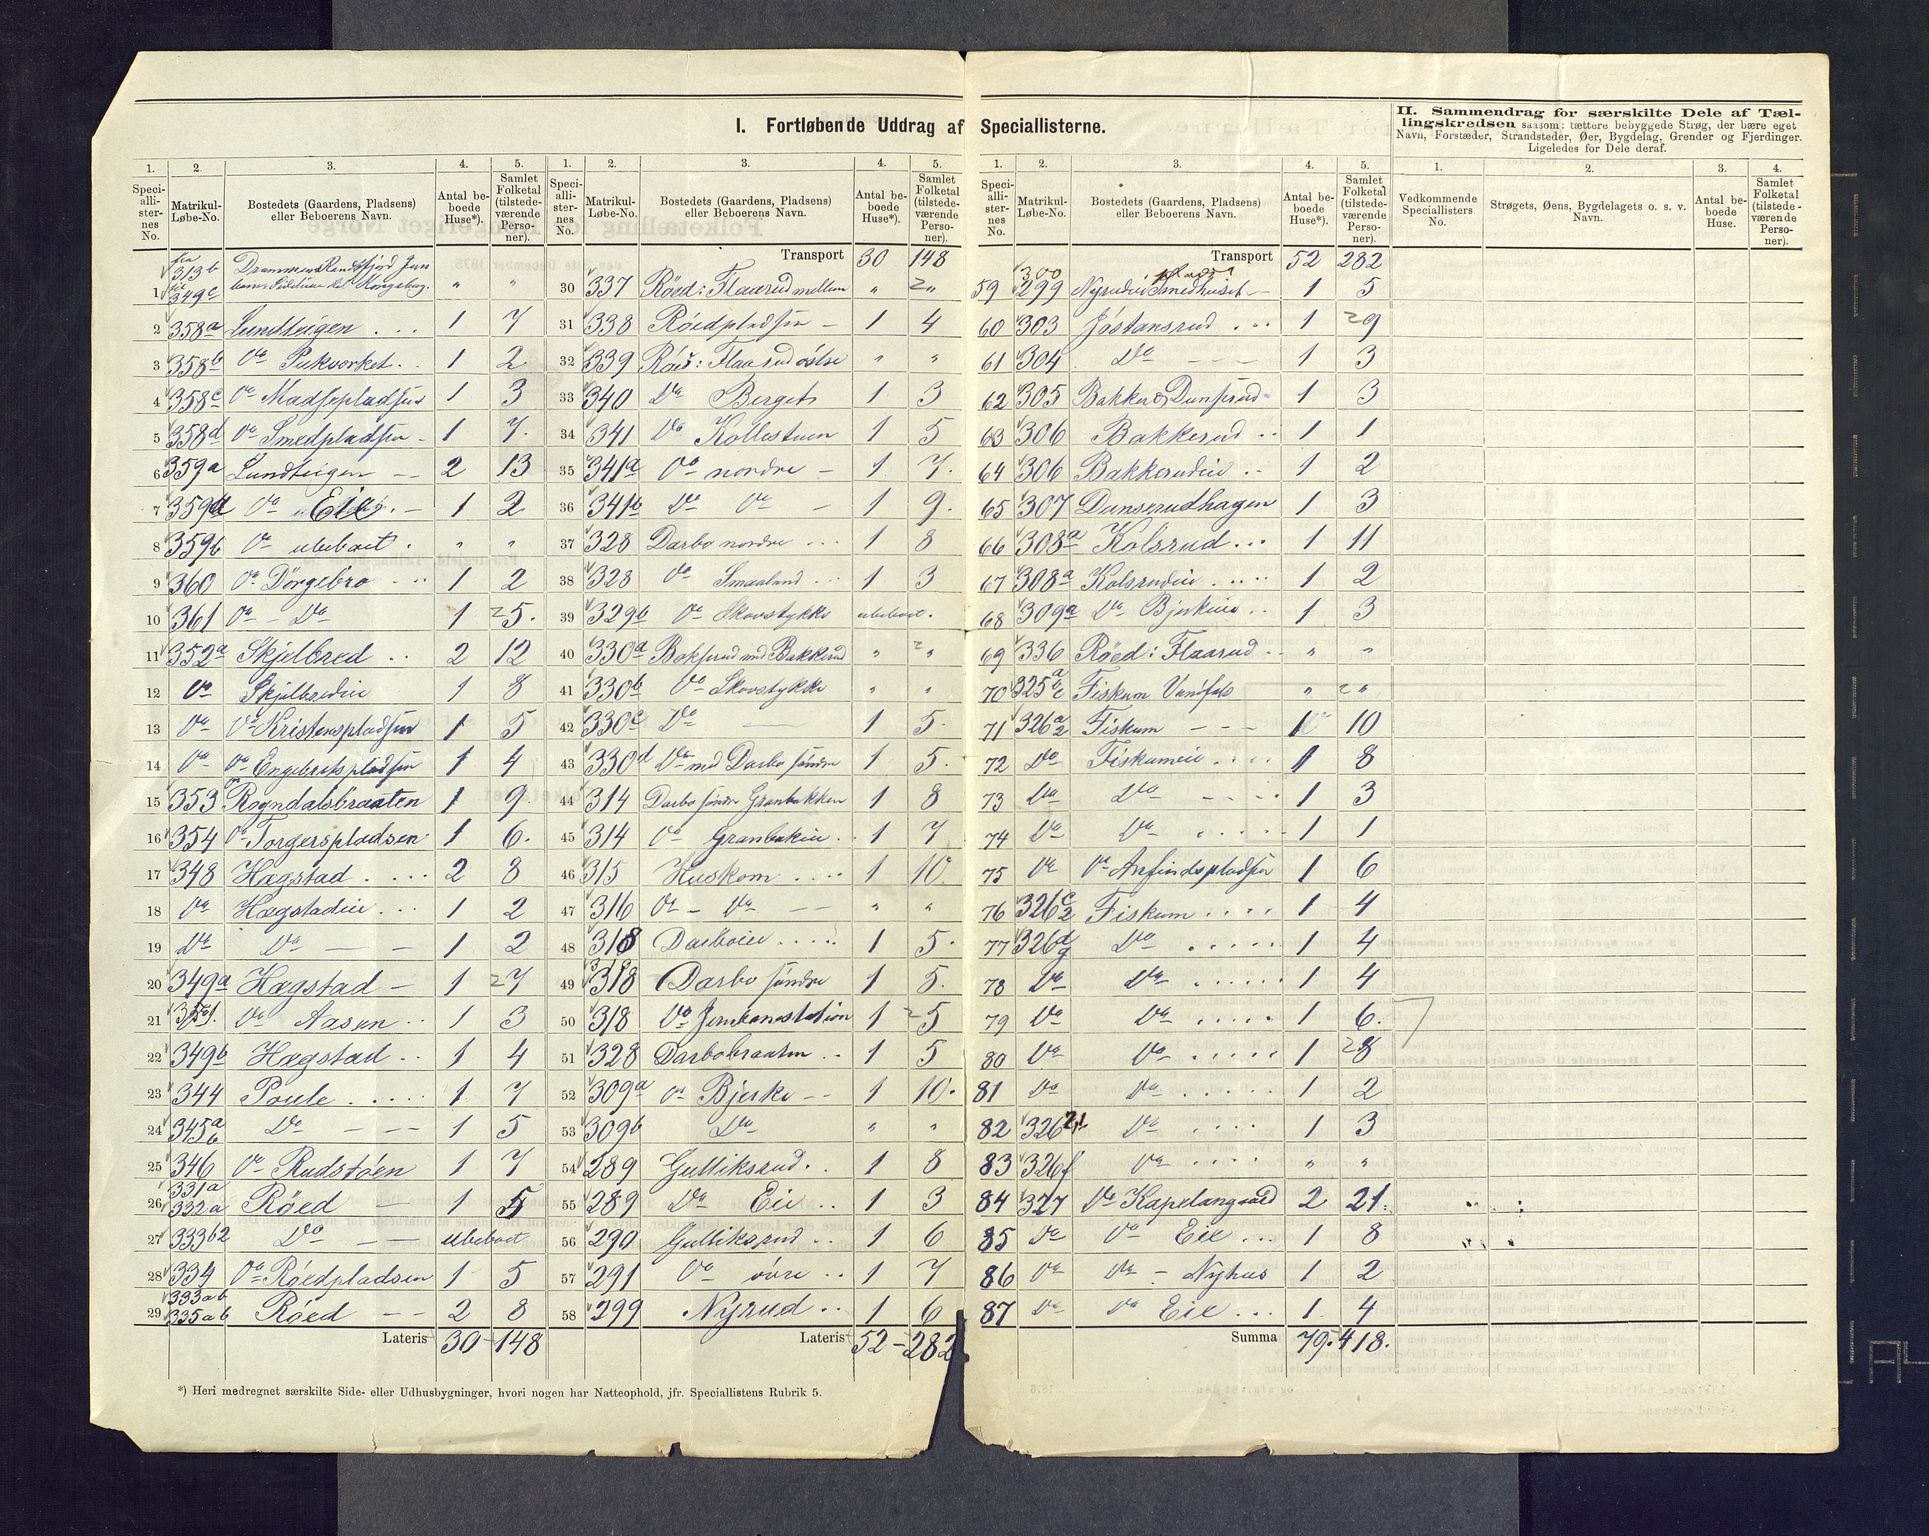 I. Fortløbende Uddrag af Speciallisterne.
II. Sammendrag for særskilte Dele af Tællingskredsen saasom: tættere bebyggede Strøg, der bære eget
Navn, Forstæder, Strandsteder, Øer, Bygdelag, Grender og Fjerdinger.
Ligeledes for Dele deraf.
1. 2. 3. 4. 5. 1. 2. 3. 4. 5. 1. 2. 3. 4. 5. 1. 2. 3. 4.
Speciallisternes No. Matrikul-Løbe-No. Bostedets (Gaardens, Pladsens) eller Beboerens Navn. Antal beboede Huse*). Samlet Folketal (tilstedeværende Personer).
Speciallisternes No. Matrikul-Løbe-No. Bostedets (Gaardens, Pladsens) eller Beboerens Navn. Antal beboede Huse*). Samlet Folketal (tilstedeværende Personer).
Speciallisternes No. Matrikul-Løbe-No. Bostedets (Gaardens, Pladsens) eller Beboerens Navn. Antal beboede Huse*). Samlet Folketal (tilstedeværende Personer).
Vedkommende Speciallisters No. Strøgets, Øens, Bygdelagets o. s. v. Navn. Antal beboede Huse. Samlet Folketal (tilstedeværende Personer).
1 313b 349c Drammen Randsfjord Jernbane Sidelinie til Kongsberg " "
2 358a Lundteigen 1 7
3 358b Do Pukverket 1 2
4 358c Do Madsepladsen 1 3
5 358d Do Smedpladsen 1 7
6 359a Lundteigen 2 13
7 359a Do Eie 1 2
8 359b Do ubeboet " "
9 360 Do Dörgebro 1 2
10 361 Do Do 1 5
11 352a Skjelbred 2 12
12 Do Skjelbredeie 1 8
13 Do Do Kristenspladsen 1 5
14 Do Do Engebretspladsen 1 4
15 353 Rogndalsbraaten 1 9
16 354 Do Torgerspladsen 1 6
17 348 Hægstad 2 8
18 Do Hægstadeie 1 2
19 Do Do 1 2
20 349a Hægstad 1 7
21 Do Aasen 1 3
22 349b Hægstad 1 4
23 344 Poule 1 7
24 345a b Do 1 5
25 346 Do Rudstöen 1 7
26 331a 332a Röed 1 5
27 333b2 Do ubeboet
28 334 Do Röedpladsen 1 5
29 333ab 335ab Röed 2 8
Lateris 30 148
Transport 30 148
30 337 Röed: Flaarud mellem " "
31 338 Röedpladsen 1 4
32 339 Röed: Flaarud östre " "
33 340 Do Berget 1 3
34 341 Do Kollestuen 1 5
35 341a Do nordre 1 7
36 341b Do Do 1 9
37 328 Darbo nordre 1 8
38 328 Do Smaaland 1 3
39 329b Do Skovstykke ubeboet
40 330a Boksrud med Bakkerud " "
41 330b Do Skovstykke " "
42 330c Do 1 5
43 330d Do med Darbo söndre 1 5
44 314 Darbo söndre Granbakken 1 8
45 314 Do Granbakeie 1 7
46 315 Huskom 1 10
47 316 Do Do " "
48 318 Darboeie 1 5
49 318 Darbo söndre 1 5
50 318 Do Jernbanestation 1 5
51 328 Darbobraaten 1 5
52 309a Do Bjerke 1 10
53 309b Do " "
54 289 Gulliksrud 1 8
55 289 Do Eie 1 3
56 290 Gulliksrud 1 6
57 291 Do övre 1 7
58 299 Nyrud 1 6
Lateris 52 282
Transport 52 282
59 300 299 Nyrudeie Smedhuset 1 5
60 303 Jöstansrud 1 9
61 304 Do 1 3
62 305 Bakker & Dunserud 1 3
63 306 Bakkerud 1 1
64 306 Bakkerudeie 1 2
65 307 Dunserudhagen 1 3
66 308a Kolsrud 1 11
67 308a Kolsrudeie 1 2
68 309a Do Bjerkeie 1 3
69 336 Röed: Flaarud " "
70 325a c Fiskum Vandfald " "
71 326a2 Fiskum 1 10
72 Do Fiskumeie 1 8
73 Do Do 1 3
74 Do Do 1 1
75 Do Do Anfindspladsen 1 6
76 326c2 Fiskum 1 4
77 326d Do 1 4
78 Do Do 1 4
79 Do Do 1 6
80 Do Do 1 8
81 Do Do 1 2
82 326 Do 1 3
83 326f Do " "
84 327 Do Kapelangaard 2 21
85 Do Do Eie 1 8
86 Do Do Nyhus 1 2
87 Do Do Eie 1 4
Summa 79 418.
*) Heri medregnet særskilte Side- eller Udhusbygninger, hvori nogen har Natteophold, jfr. Speciallistens Rubrik 5.